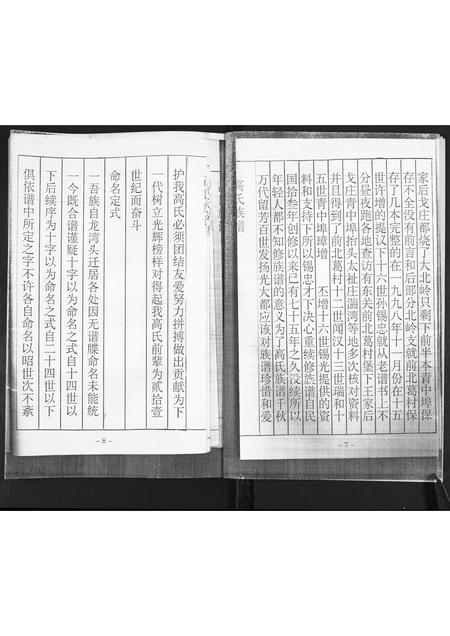 高氏族谱
家后戈庄都烧了大北岭只剩下前半本青中埠保
存不全没有前言和后部分北岭支就前北葛村保
存了几本完整的在一九九八年十一月份在十五
世许增的提议下十六世孙锡忠就从老谱书上不
分昼夜跑各地查访有东关前北葛村堡下王家后
戈庄青中埠抬头太祉庄湍湾等地多次核对资料
并且得到了前北葛村十二世闻汉十三世瑞和十
五世青中埠璋增 丕增十六世锡光提供的资
料和支持下所以锡忠才下决心重续修族谱自民
国拾叁年创修以来已有七十五年之久没续所以
年轻人都不知修族谱的意义为了高氏族谱千秋
万代留芳百世发扬光大都应该对族谱珍惜和爱
-7-
护我高氏必须团结友爱努力拼搏做出贡献为下
一代树立光辉榜样对得起我高氏前辈为贰拾壹
世纪而奋斗
命名定式
一吾族自龙湾头迁居各处因无谱牒命名未能统
一今既合谱谨疑十字以为命名之式自十四世以
下后续序为十字以为命名之式自二十四世以下
俱依谱中所定之字不许各自命名以昭世次不紊
-8-